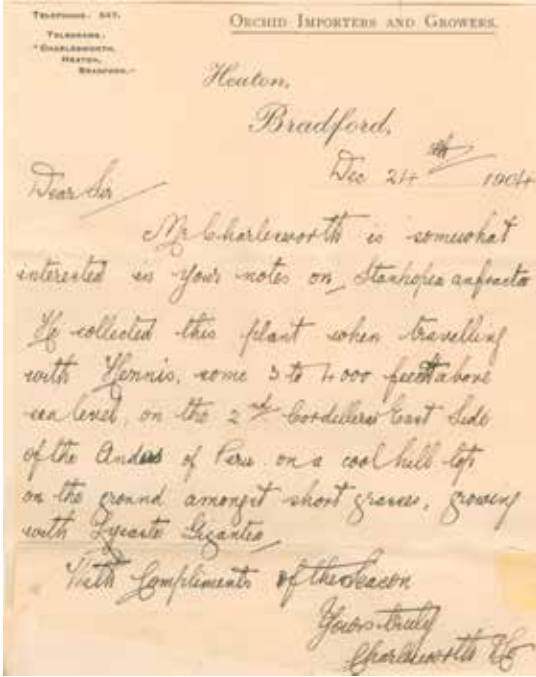 TELEPHONE. 547.
TELEGRAMS.
"CHARLESWORTH,
HEATON,
BRADFORD."
ORCHID IMPORTERS AND GROWERS.
Heaton,
Bradford,
Dec 24th 1904
Dear Sir
Mr Charlesworth is somewhat
interested in your notes on Stanhopea anfracta
He collected this plant when travelling
with Hennis, some 3 to 4000 feet above
sea level, on the 2nd Cordilleras East Side
of the Andes of Peru on a cool hill top
on the ground amongst short grasses, growing
with Lycaste Gigantea
With Compliments of the Season
Yours truly
Charlesworth & Co